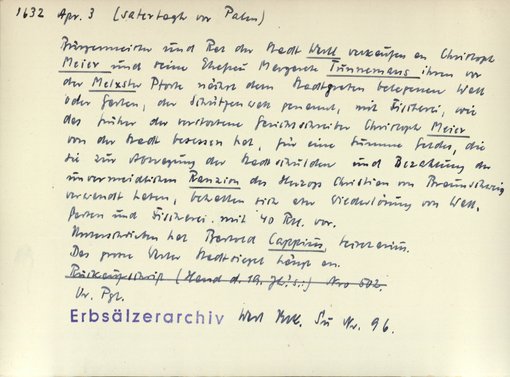 1632 Apr. 3 (satertagh vor Palm)
Bürgermeister und Rat der Stadt Werl verkaufen an Christoph
Meier und seine Ehefrau Margarete Tünnemans ihren vor
der Melxster Pforte nächst dem Stadtgraben belegenen Wall
oder Garten, der Schützenwall genannt, mit Fischerei, wie
das früher der verstorbene Gerichtsschreiber Christoph Meier
von der Stadt besessen hat, für eine Summe Geldes, die
sie zur Abtragung der Stadtschulden und Bezahlung der
unvermeidlichen Ranzion des Herzogs Christian von Braunschweig
verwendt haben, behalten sich aber Wiederlösung von Wall,
Garten und Fischerei mit 40 Rtl. vor.
Unterschrieben hat Bertold Cappius, secretarius.
Das große Werler Stadtsiegel hängt an.
Rückaufschrift (Hand d. 19. Jh.s.:) Nro 502.
Or. Pgt.
Erbsälzerarchiv Werl Nr. 96.